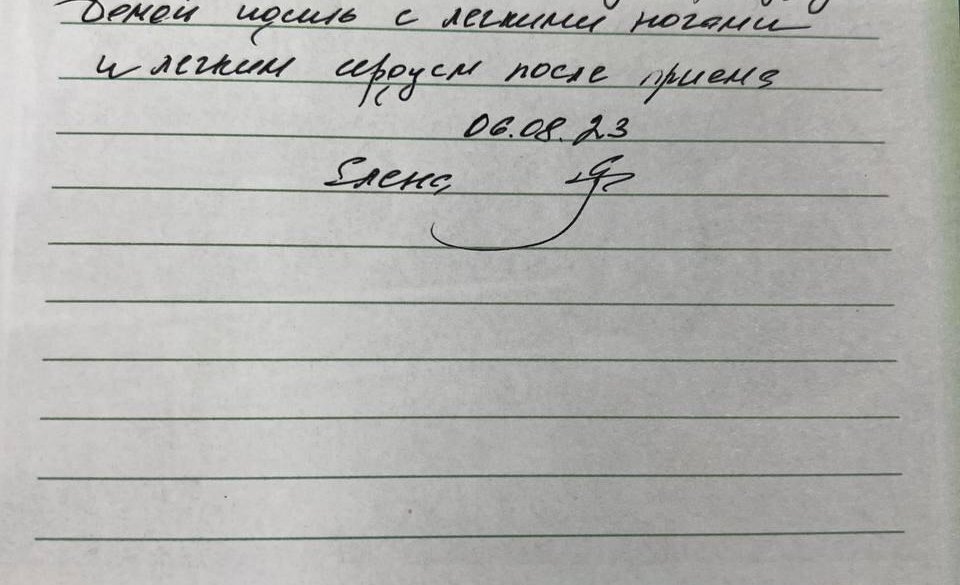 домой идёшь с легкими ногами
и легким сердцем после приема
06.08.23
Елена